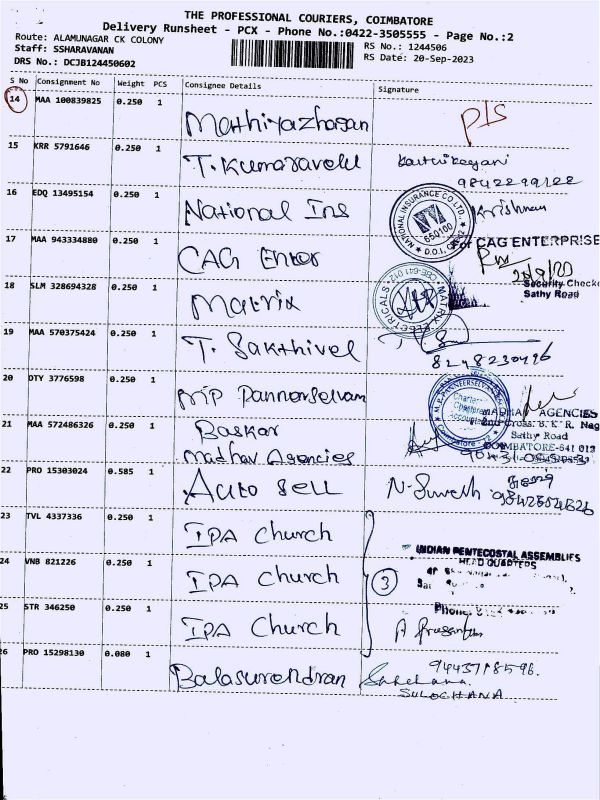 THE PROFESSIONAL COURIERS, COIMBATORE
Delivery Runsheet - PCX - Phone No.:0422-3505555 - Page No.:2
Route: ALAMUNAGAR CK COLONY
RS No.: 1244506
Staff: SSHARAVANAN
RS Date: 20-Sep-2023
DRS No.: DCJB124450602
S No Consignment No Weight PCS Consignee Details Signature
14 MAA 100839825 0.250 1 Mathiyazhagan P/S
15 KRR 5791646 0.250 1 T. Kumaravelu Karthikeyani
9842299122
16 EDQ 13495154 0.250 1 National Ins Krishnan
NATIONAL INSURANCE CO LTD. 650100 D.O.I.
17 MAA 943334880 0.250 1 CAG Enter
For CAG ENTERPRISE
Security Checke
Sathy Road
18 SLM 328694328 0.250 1 Matrix
MATRIX ELECTRICALS
19 MAA 570375424 0.250 1 T. Sakthivel
8248230496
20 DTY 3776598 0.250 1 Mrp Pannerselvam
Chartered Accountant
21 MAA 572486326 0.250 1 Baskar
Madhav Agencies
MADHAV AGENCIES
2nd Cross, S. K. R. Nag
Sathy Road
COIMBATORE-641 012
22 PRO 15303024 0.585 1 Auto sell N. Suresh
23 TVL 4337336 0.250 1 IPA Church
24 VNB 821226 0.250 1 IPA Church
3
INDIAN PENTECOSTAL ASSEMBLIES
HEAD QUARTERS
Phone:
25 STR 346250 0.250 1 IPA Church A Prasanth
26 PRO 15298130 0.080 1 Balasurendran
9443718596.
Sulochana.
SULOCHANA